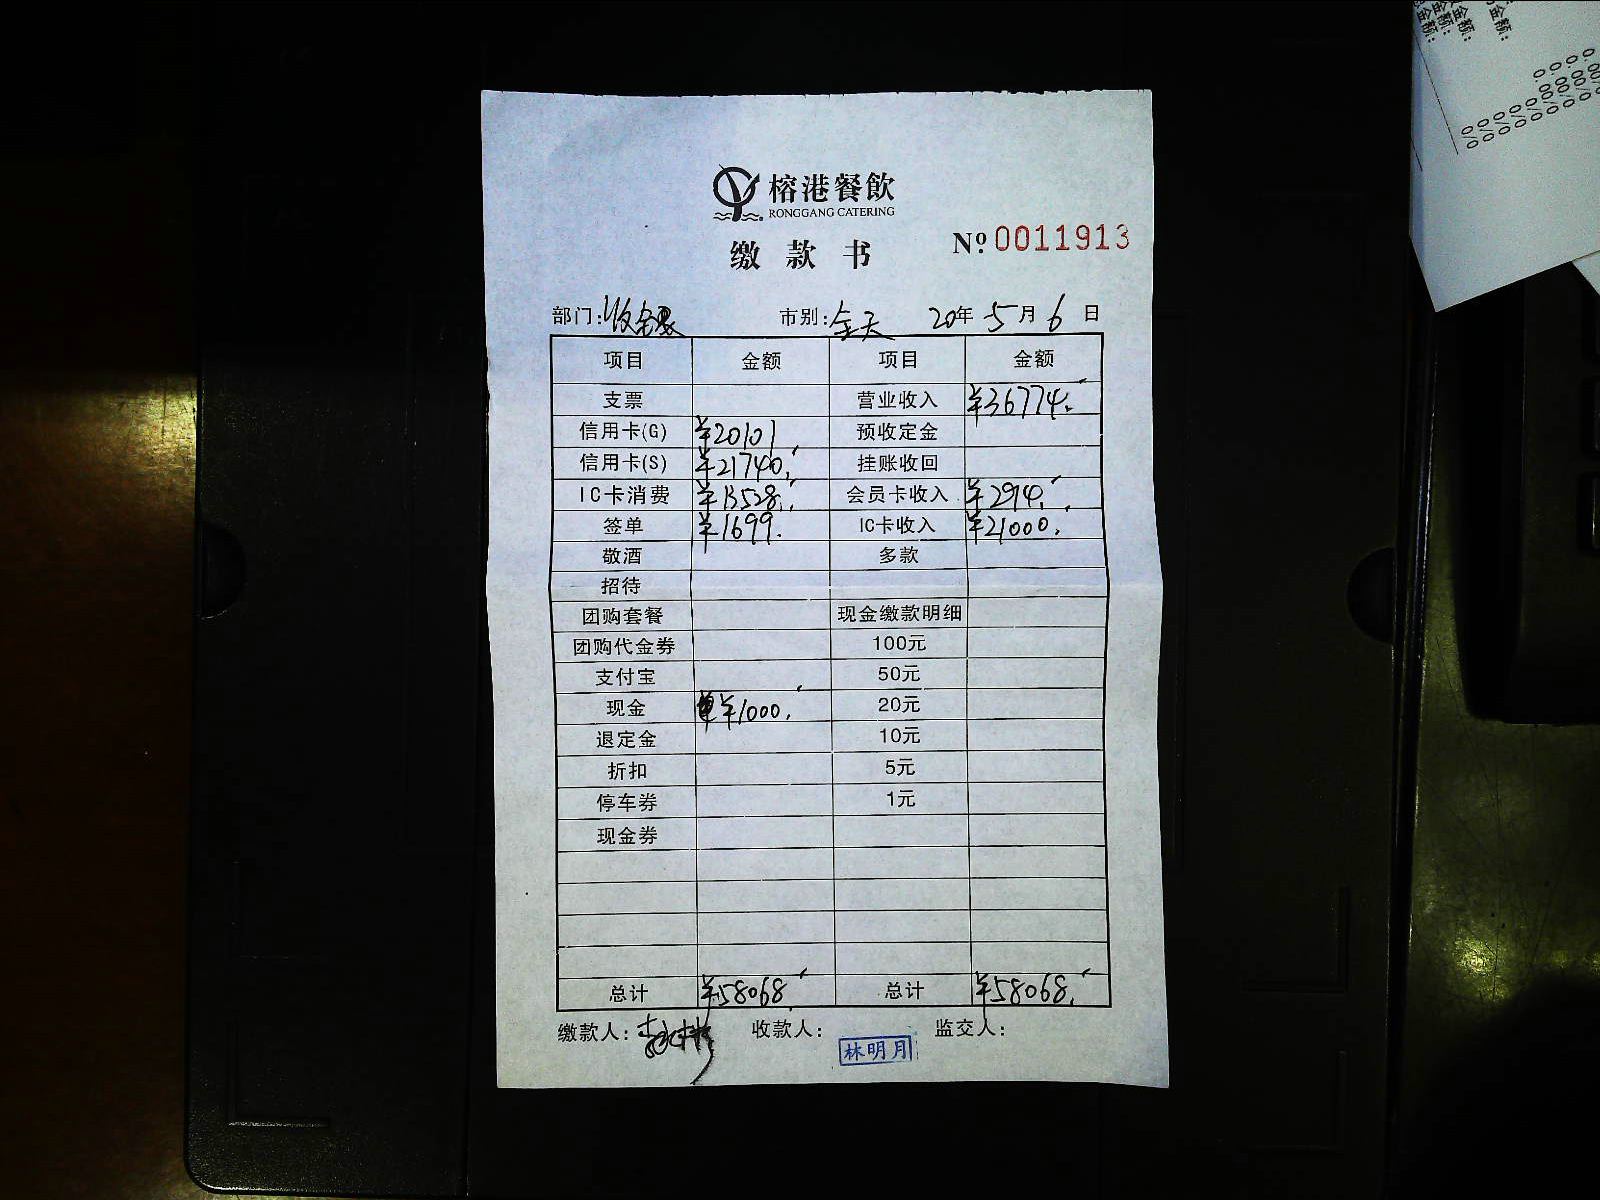 榕港餐飲
RONGGANG CATERING
缴款书
№ 0011913
部门: 收银 市别: 全天 20年 5月 6日
项目 金额 项目 金额
支票 营业收入 ¥36774.
信用卡(G) ¥20101 预收定金
信用卡(S) ¥21740. 挂账收回
IC卡消费 ¥13528. 会员卡收入 ¥294.
签单 ¥1699. IC卡收入 ¥21000.
敬酒 多款
招待
团购套餐 现金缴款明细
团购代金券 100元
支付宝 50元
现金 ¥1000. 20元
退定金 10元
折扣 5元
停车券 1元
现金券
总计 ¥58068 总计 ¥58068.
缴款人: 收款人: 林明月 监交人:
金额:
金额:
金额:
金额: